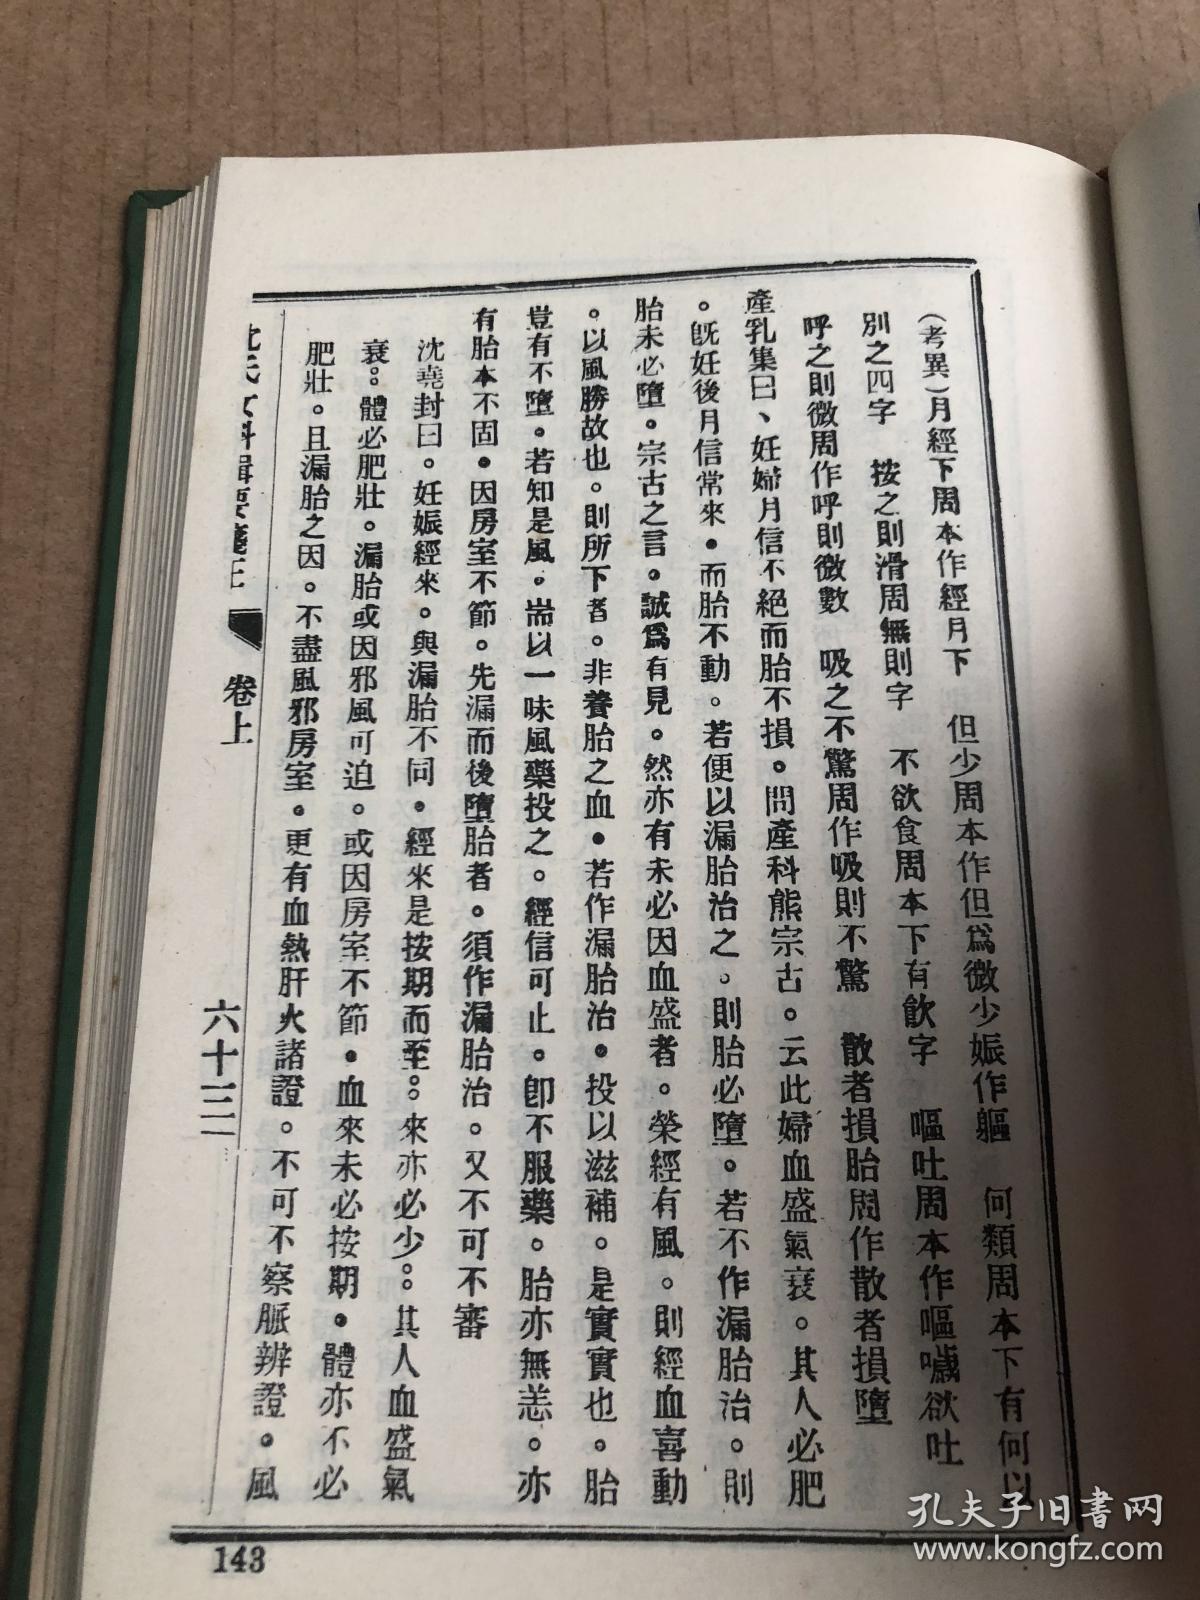 （考異）月經下周本作經月下　但少周本作但爲微少娠作軀　何類周本下有何以
別之四字　按之則滑周無則字　不欲食周本下有飮字　嘔吐周本作嘔噦欲吐
呼之則微周作呼則微數　吸之不驚周作吸則不驚　散者損胎周作散者損墮
產乳集曰、妊婦月信不絕而胎不損。問產科熊宗古。云此婦血盛氣衰。其人必肥
。旣妊後月信常來。而胎不動。若便以漏胎治之。則胎必墮。若不作漏胎治。則
胎未必墮。宗古之言。誠爲有見。然亦有未必因血盛者。榮經有風。則經血喜動
。以風勝故也。則所下者。非養胎之血。若作漏胎治。投以滋補。是實實也。胎
豈有不墮。若知是風。耑以一味風藥投之。經信可止。卽不服藥。胎亦無恙。亦
有胎本不固。因房室不節。先漏而後墮胎者。須作漏胎治。又不可不審
沈堯封曰。妊娠經來。與漏胎不同。經來是按期而至。來亦必少。其人血盛氣
衰。體必肥壯。漏胎或因邪風可迫。或因房室不節。血來未必按期。體亦不必
肥壯。且漏胎之因。不盡風邪房室。更有血熱肝火諸證。不可不察脈辨證。風
沈氏女科輯要箋正　卷上　六十三
143
孔夫子旧書网
www.kongfz.com